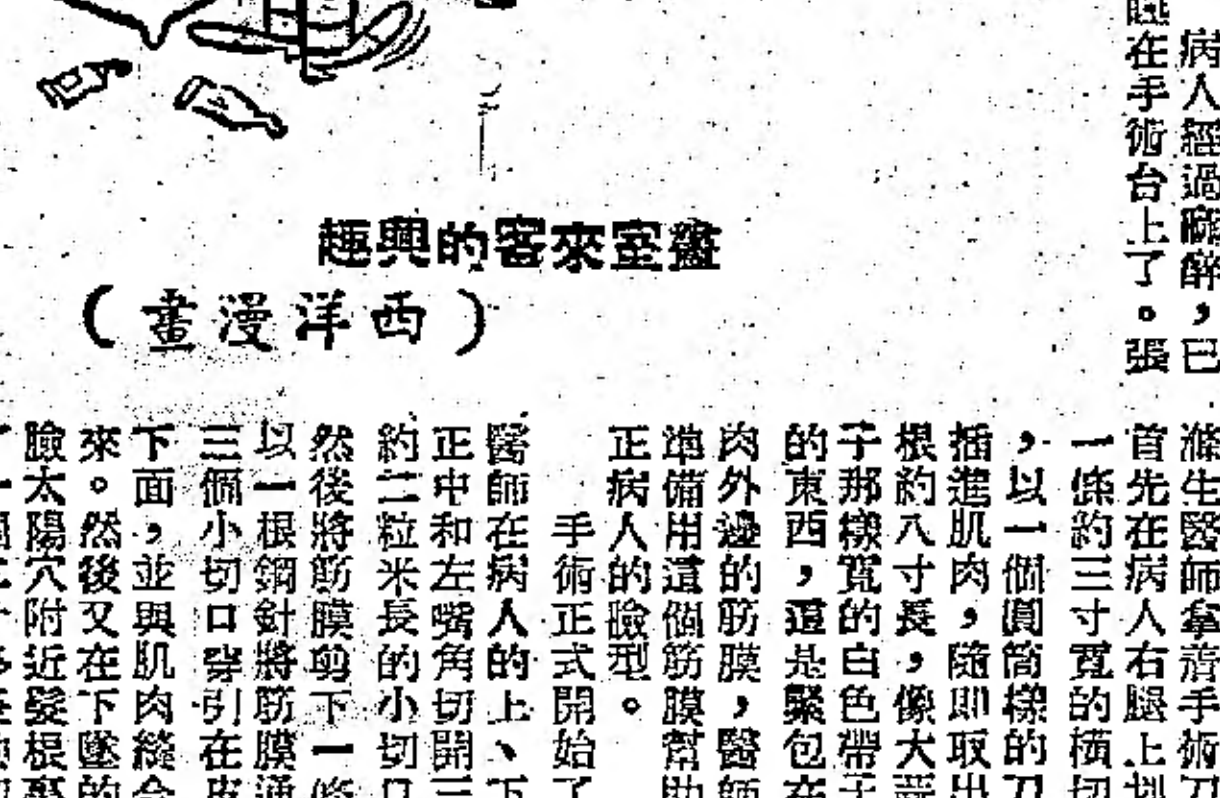 病人經過麻醉，已
睡在手術台上了。張
滌生醫師拿著手術刀
首先在病人右腿上划
一條約三寸寬的橫切
，以一個圓筒樣的刀
插進肌肉，隨即取出
根約八寸長，像大蒜
子那樣寬的白色帶子
的東西，這是緊包在
肉外邊的筋膜，醫師
準備用這個筋膜幫助
正病人的臉型。
手術正式開始了
醫師在病人的上、下
正中和左嘴角切開三
約二粒米長的小切口
然後將筋膜剪下一條
以一根鋼針將筋膜通
三個小切口穿引在皮
下面，並與肌肉縫合
來。然後又在下墜的
臉太陽穴附近髮根裏
畫室來客的興趣
（西洋漫畫）